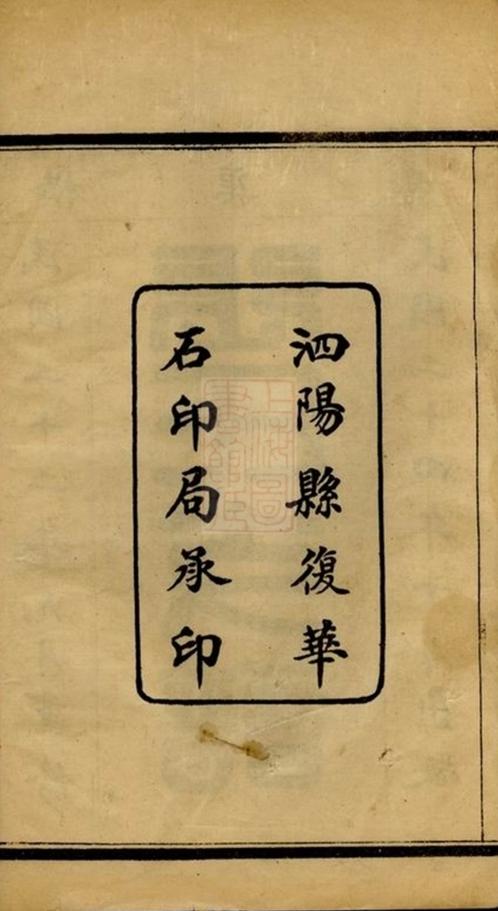 泗陽縣復華
石印局承印